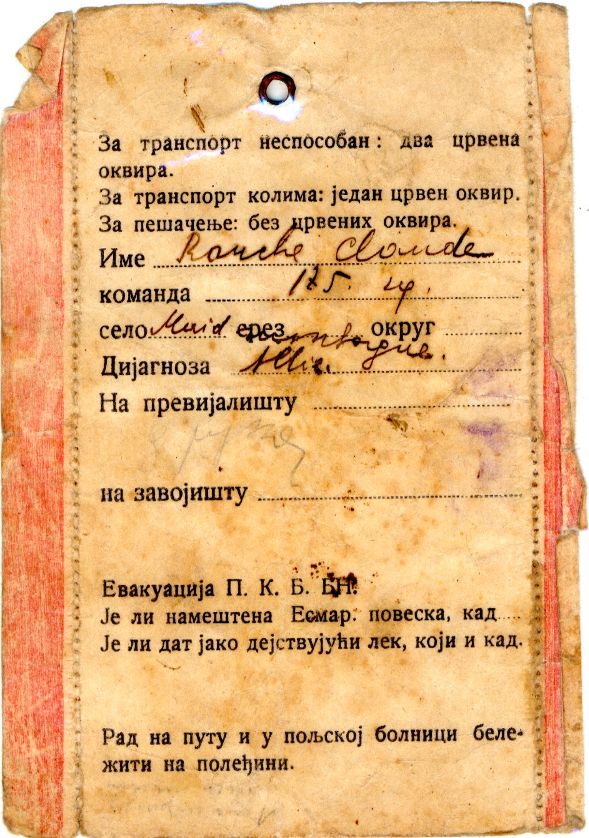 За транспорт неспособан: два црвена
оквира.
За транспорт колима: један црвен оквир.
За пешачење: без црвених оквира.
Име Claude
команда 175.
село срез округ
Дијагноза
На превијалишту
на завојишту
Евакуација П. К. Б. БН.
Је ли намештена Есмар. повеска, кад
Је ли дат јако дејствујући лек, који и кад.
Рад на путу и у пољској болници беле-
жити на полеђини.